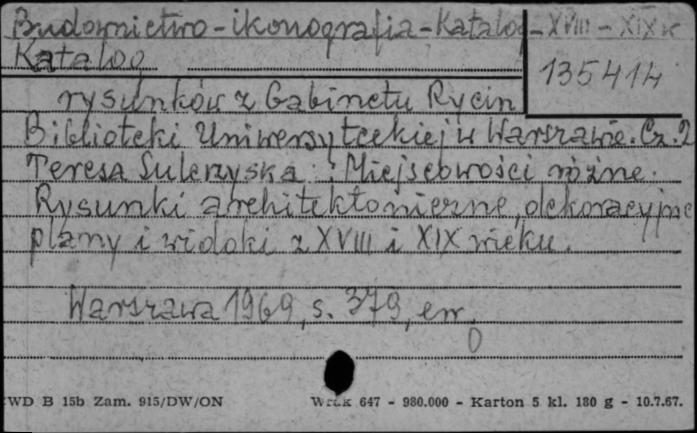 Budownictwo - ikonografia - Katalog - XVIII - XIX w
Katalog
135414
rysunków z Gabinetu Rycin
Biblioteki Uniwersyteckiej w Warszawie. Cz. 2
Teresa Sulerzyska : Miejscowości różne.
Rysunki architektoniczne, dekoracyjne
plany i widoki z XVIII i XIX wieku.
Warszawa 1969, s. 379, err
0
WD B 15b Zam. 915/DW/ON
647 - 980.000 - Karton 5 kl. 180 g - 10.7.67.